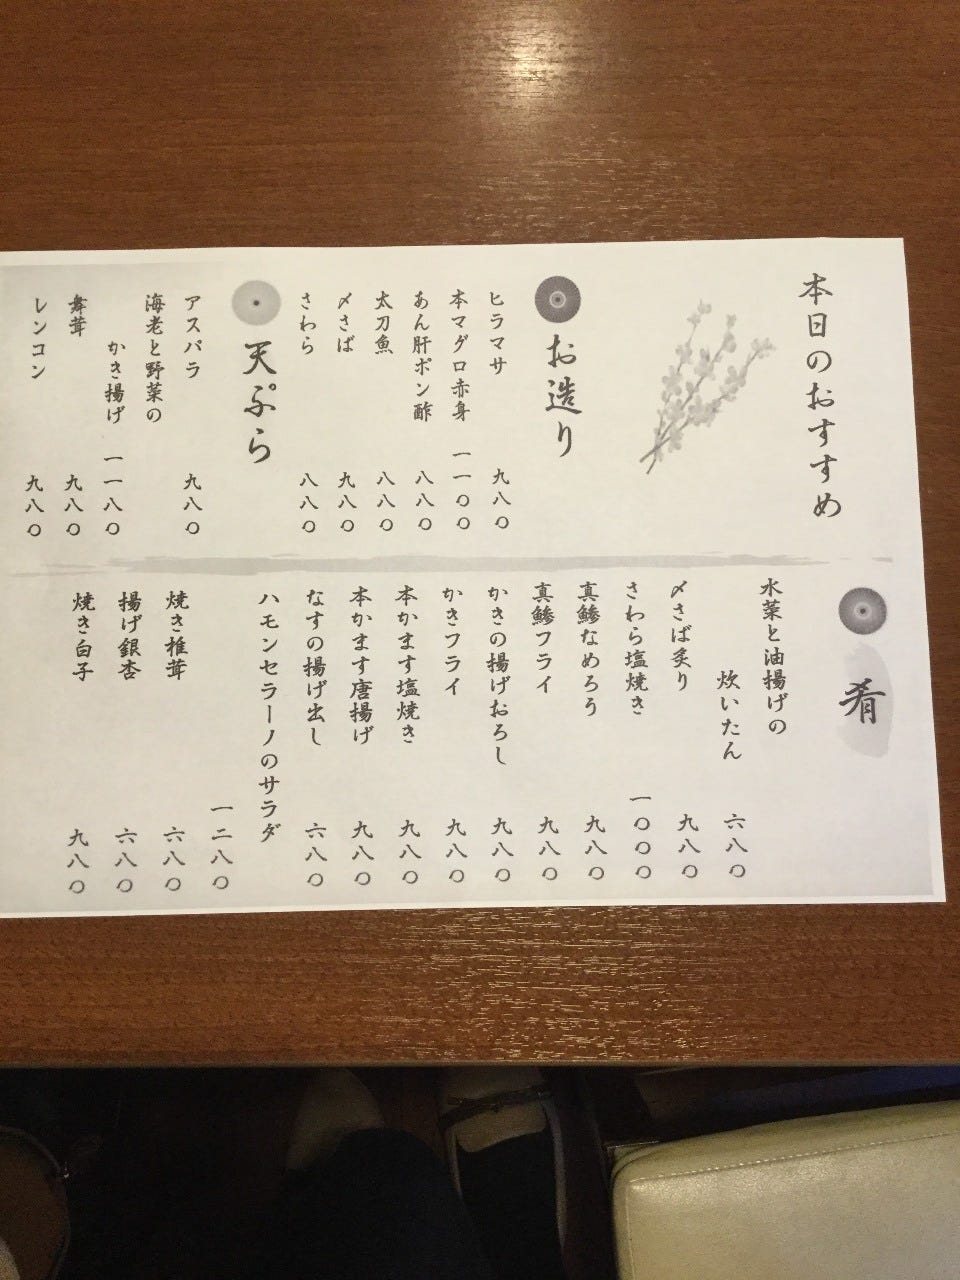 本日のおすすめ
お造り
ヒラマサ 九八〇
本マグロ赤身 一一〇〇
あん肝ポン酢 八八〇
太刀魚 八八〇
〆さば 九八〇
さわら 八八〇
天ぷら
アスパラ 九八〇
海老と野菜の
かき揚げ 一一八〇
舞茸 九八〇
レンコン 九八〇
肴
水菜と油揚げの
炊いたん 六八〇
〆さば炙り 九八〇
さわら塩焼き 一〇〇〇
真鯵なめろう 九八〇
真鯵フライ 九八〇
かきの揚げおろし 九八〇
かきフライ 九八〇
本かます塩焼き 九八〇
本かます唐揚げ 九八〇
なすの揚げ出し 六八〇
ハモンセラーノのサラダ
一二八〇
焼き椎茸 六八〇
揚げ銀杏 六八〇
焼き白子 九八〇